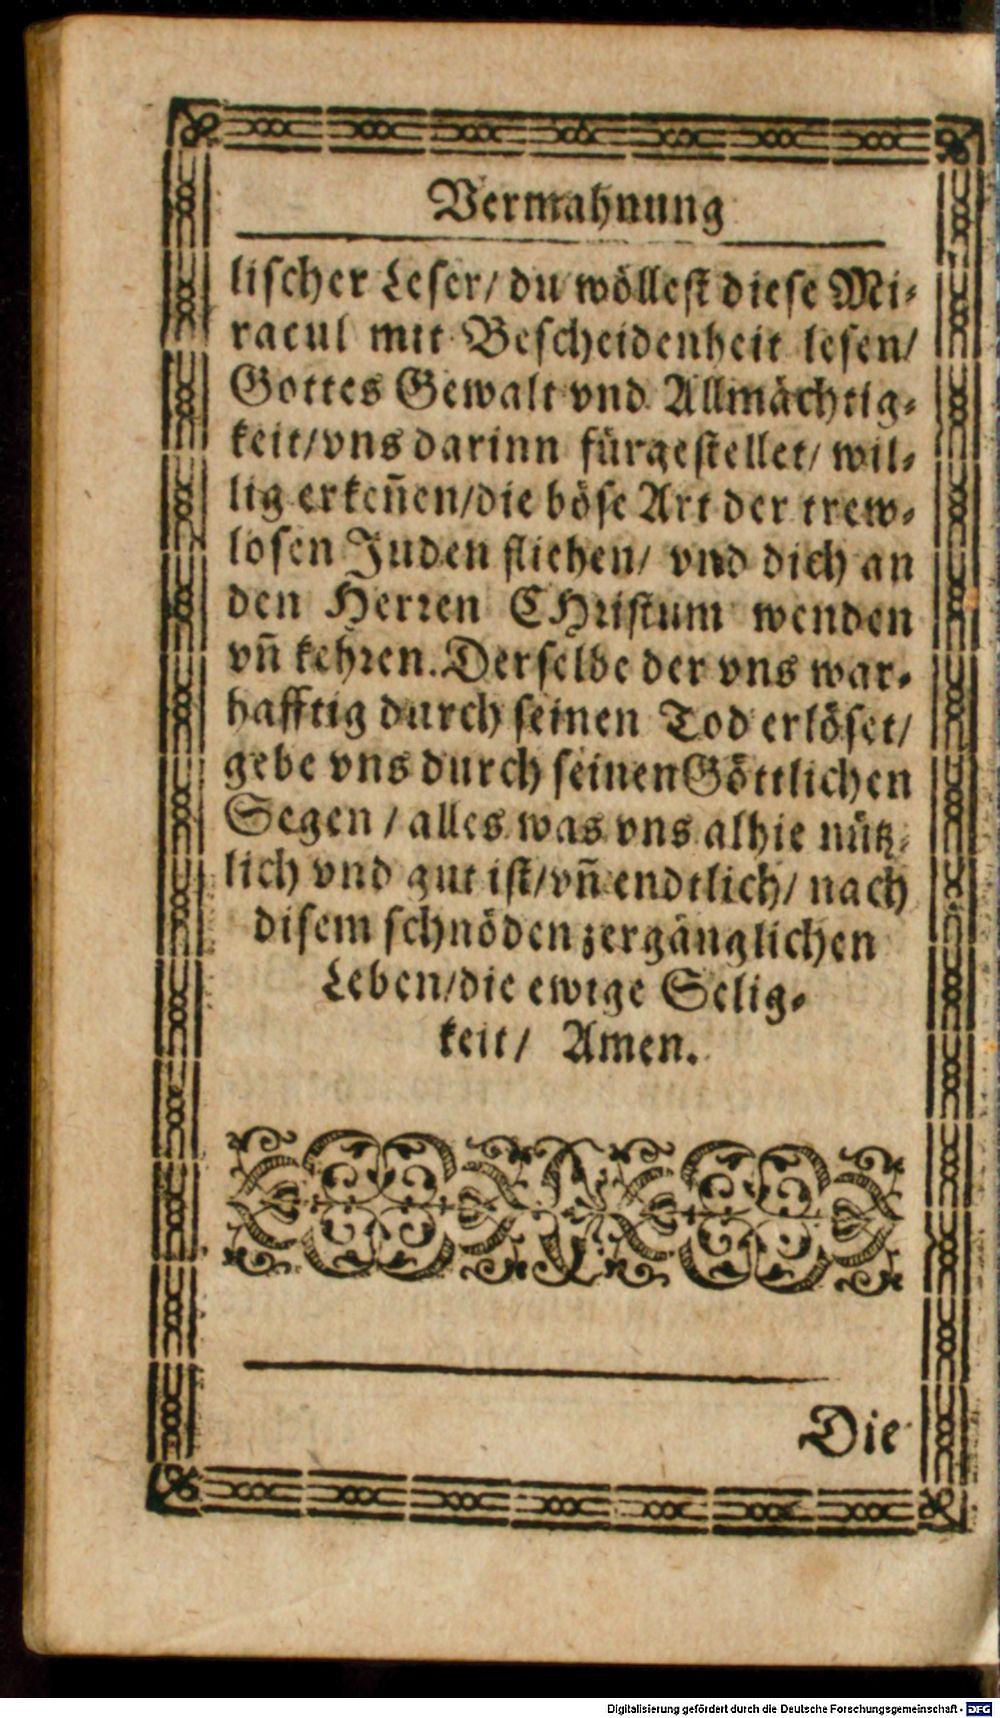 Vermahnung
lischer Leser/ du wöllest diese Mi-
racul mit Bescheidenheit lesen/
Gottes Gewalt vnd Allmächtig-
keit/vns darinn fürgestellet/ wil-
lig erkeñen/die böse Art der trew-
losen Juden fliehen/ vnd dich an
den Herren CHristum wenden
vñ kehren. Derselbe der vns war-
hafftig durch seinen Tod erlöset/
gebe vns durch seinen Göttlichen
Segen / alles was vns alhie nütz-
lich vnd gut ist/vñ endtlich/ nach
disem schnöden zergänglichen
Leben/die ewige Selig-
keit/ Amen.
Die
Digitalisierung gefördert durch die Deutsche Forschungsgemeinschaft - DFG